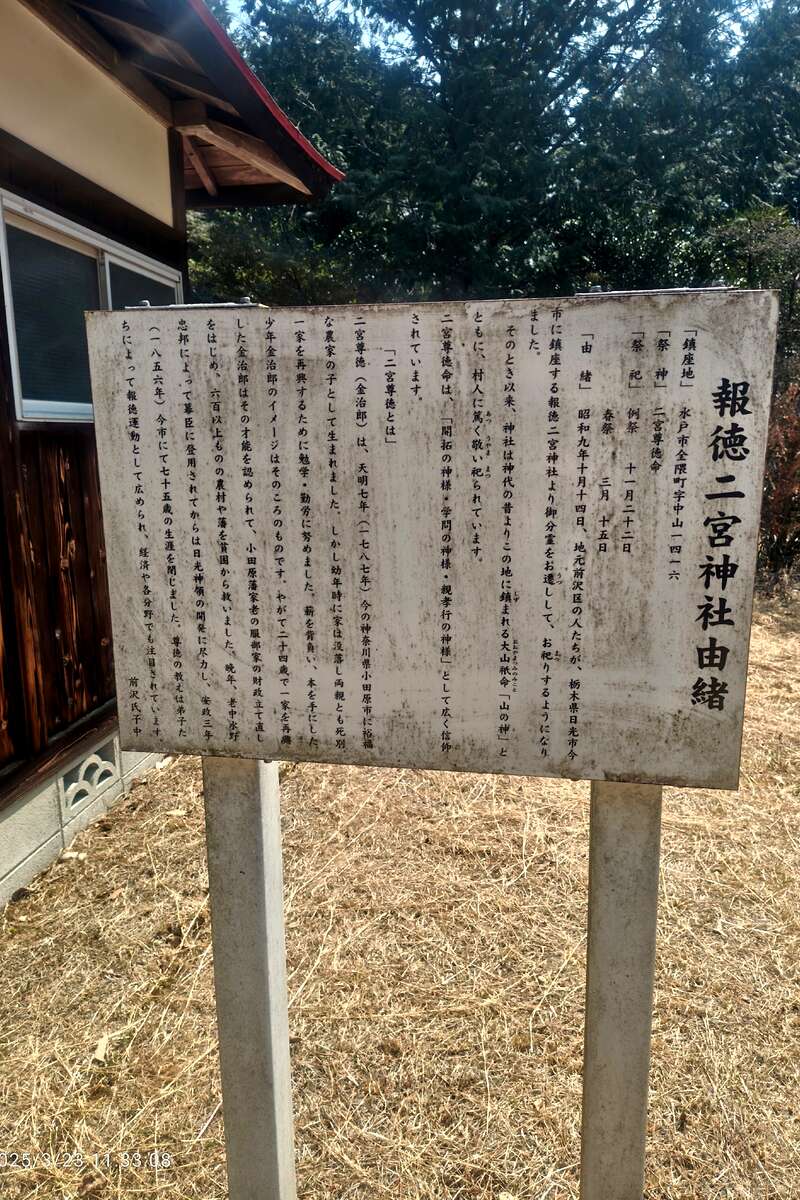 報徳二宮神社由緒
「鎮座地」 水戸市全隈町字中山一四一六
「祭神」 二宮尊徳命
「祭祀」 例祭 十一月二十二日
春祭 三月 十五日
「由緒」 昭和九年十月十四日、地元前沢区の人たちが、栃木県日光市今
市に鎮座する報徳二宮神社より御分霊をお遷しして、お祀りするようになり
ました。
そのとき以来、神社は神代の昔よりこの地に鎮まれる大山祇命「山の神」と
ともに、村人に篤く敬い祀られています。
二宮尊徳命は、「開拓の神様・学問の神様・親孝行の神様」として広く信仰
されています。
「二宮尊徳とは」
二宮尊徳(金治郎)は、天明七年(一七八七年)今の神奈川県小田原市に裕福
な農家の子として生まれました。しかし幼年時に家は没落し両親とも死別
一家を再興するために勉学・勤労に努めました。薪を背負い、本を手にした
少年金治郎のイメージはそのころのものです。やがて二十四歳で一家を再興
した金治郎はその才能を認められて、小田原藩家老の服部家の財政立て直し
をはじめ、六百以上もの農村や藩を貧困から救いました。晩年、老中水野
忠邦によって幕臣に登用されてからは日光神領の開発に尽力し、安政三年
(一八五六年)今市にて七十五歳の生涯を閉じました。尊徳の教えは弟子た
ちによって報徳運動として広められ、経済や各分野でも注目されています。
前沢氏子中
025/3/23 11:33:08